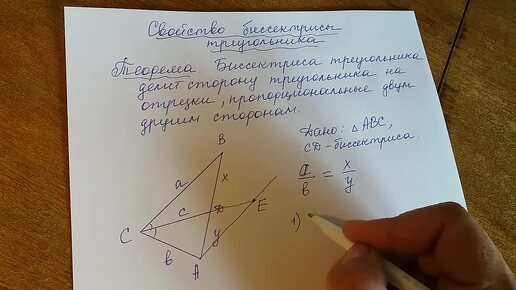 Свойство биссектрисы
треугольника
Теорема. Биссектриса треугольника
делит сторону треугольника на
отрезки, пропорциональные двум
другим сторонам.
Дано: △ABC,
CD-биссектриса.
a/b = x/y
1)
B
a
x
c
E
C
y
b
A